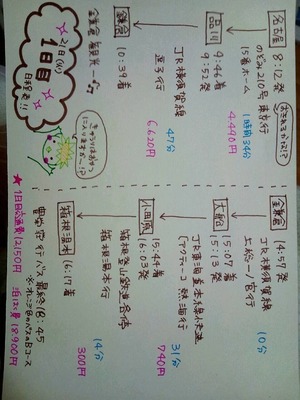 名古屋
8:12発
のぞみ210号 東京行
15番ホーム
1時間34分
4,490円
品川
9:46着
9:52発
JR横須賀線
逗子行
47分
6,620円
鎌倉
10:39着
鎌倉観光〜♪
21日(火)
1日目
日程発表!!
鎌倉
14:57発
JR横須賀線
上総一ノ宮行
10分
大船
15:07着
15:13発
JR東海道本線快速
(アクティー) 熱海行
31分
740円
小田原
15:44着
16:03発
箱根登山鉄道各停
箱根湯本行
14分
300円
箱根湯本
16:17着
豊栄荘
最終18:45
★1日目交通費12,150円
泊まり代 18,900円